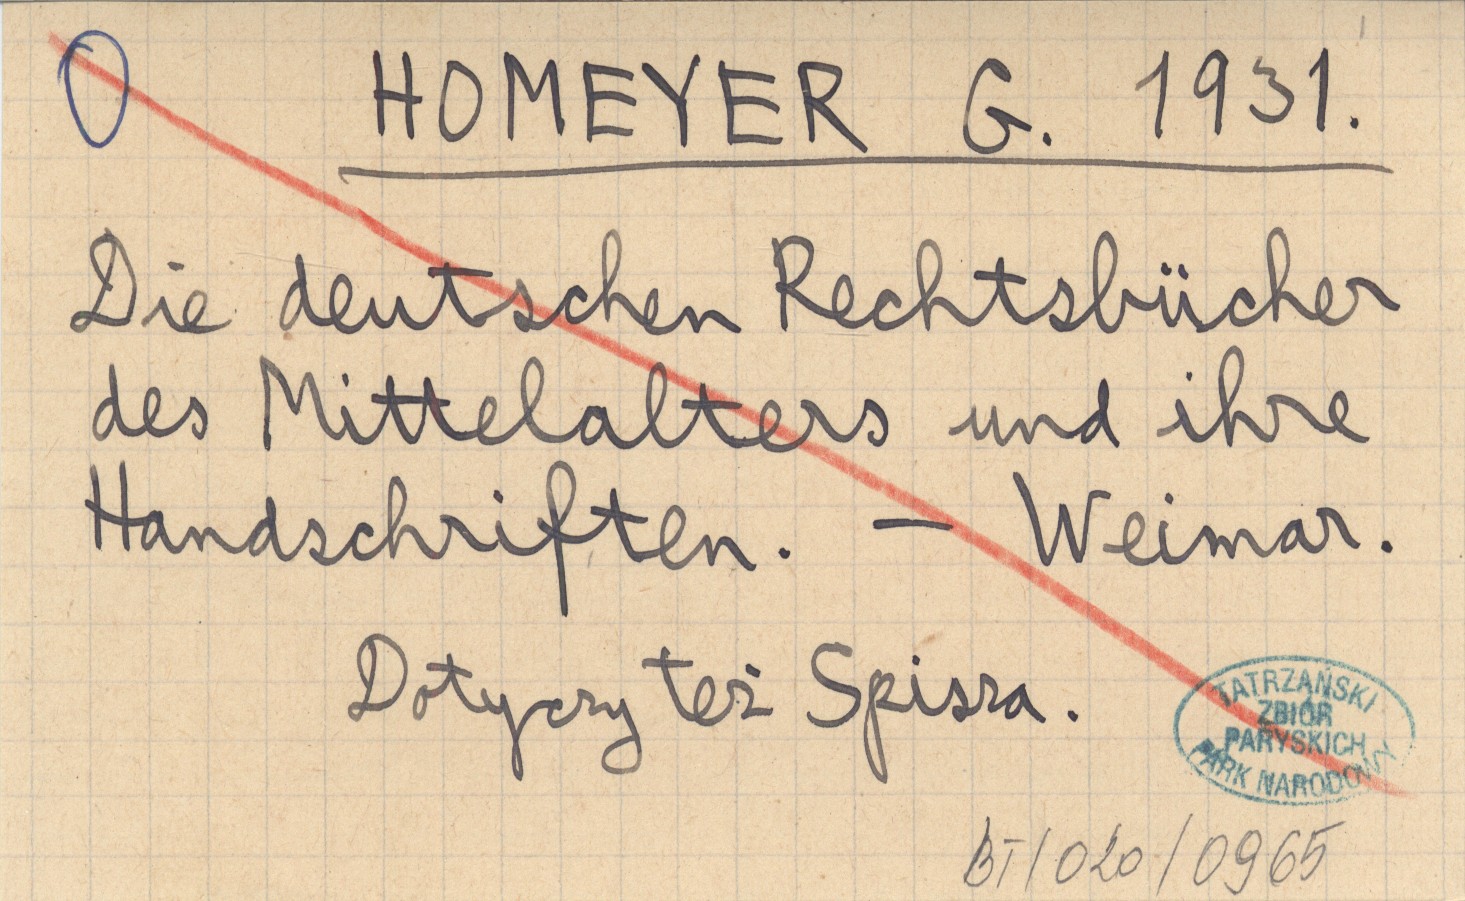 HOMEYER G. 1931.
Die deutschen Rechtsbücher
des Mittelalters und ihre
Handschriften. — Weimar.
Dotyczy też Spisza.
TATRZAŃSKI
ZBIÓR
PARYSKICH
PARK NARODOWY
BT/020/0965